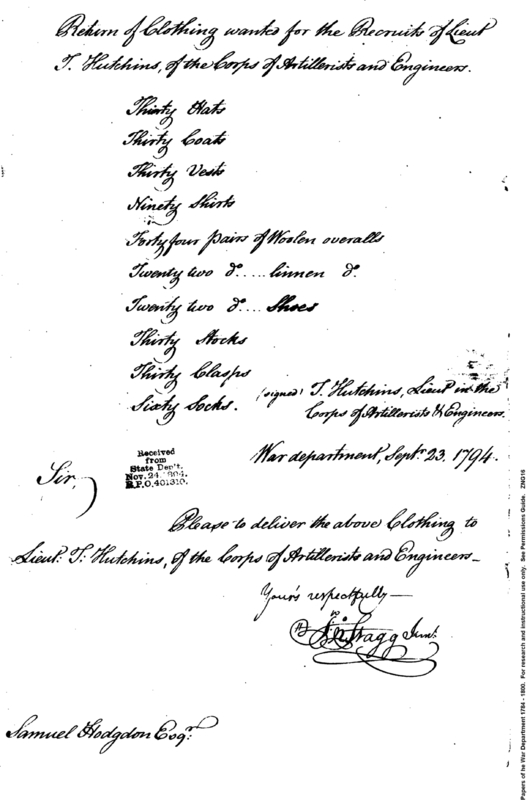 Return of Clothing wanted for the Recruits of Lieut
T. Hutchins, of the Corps of Artillerists and Engineers.
Thirty Hats
Thirty Coats
Thirty Vests
Ninety Shirts
Forty four pairs of Woolen overalls
Twenty two do.....linnen do.
Twenty two do.... Shoes
Thirty Stocks
Thirty Clasps
Sixty Socks.
(signed) T. Hutchins, Lieut in the
Corps of Artillerists & Engineers.
War department, Sept. 23. 1794.
Received
from
State Dep't.
Nov. 24, 1894.
R.P.O. 401310.
Sir,
Please to deliver the above Clothing to
Lieut. T. Hutchins, of the Corps of Artillerists and Engineers_
Your's respectfully—
Stagg Junr.
Samuel Hodgdon Esqr.
Papers of he War Department 1784 - 1800. For research and instructional use only. See Permissions Guide. ZNG16